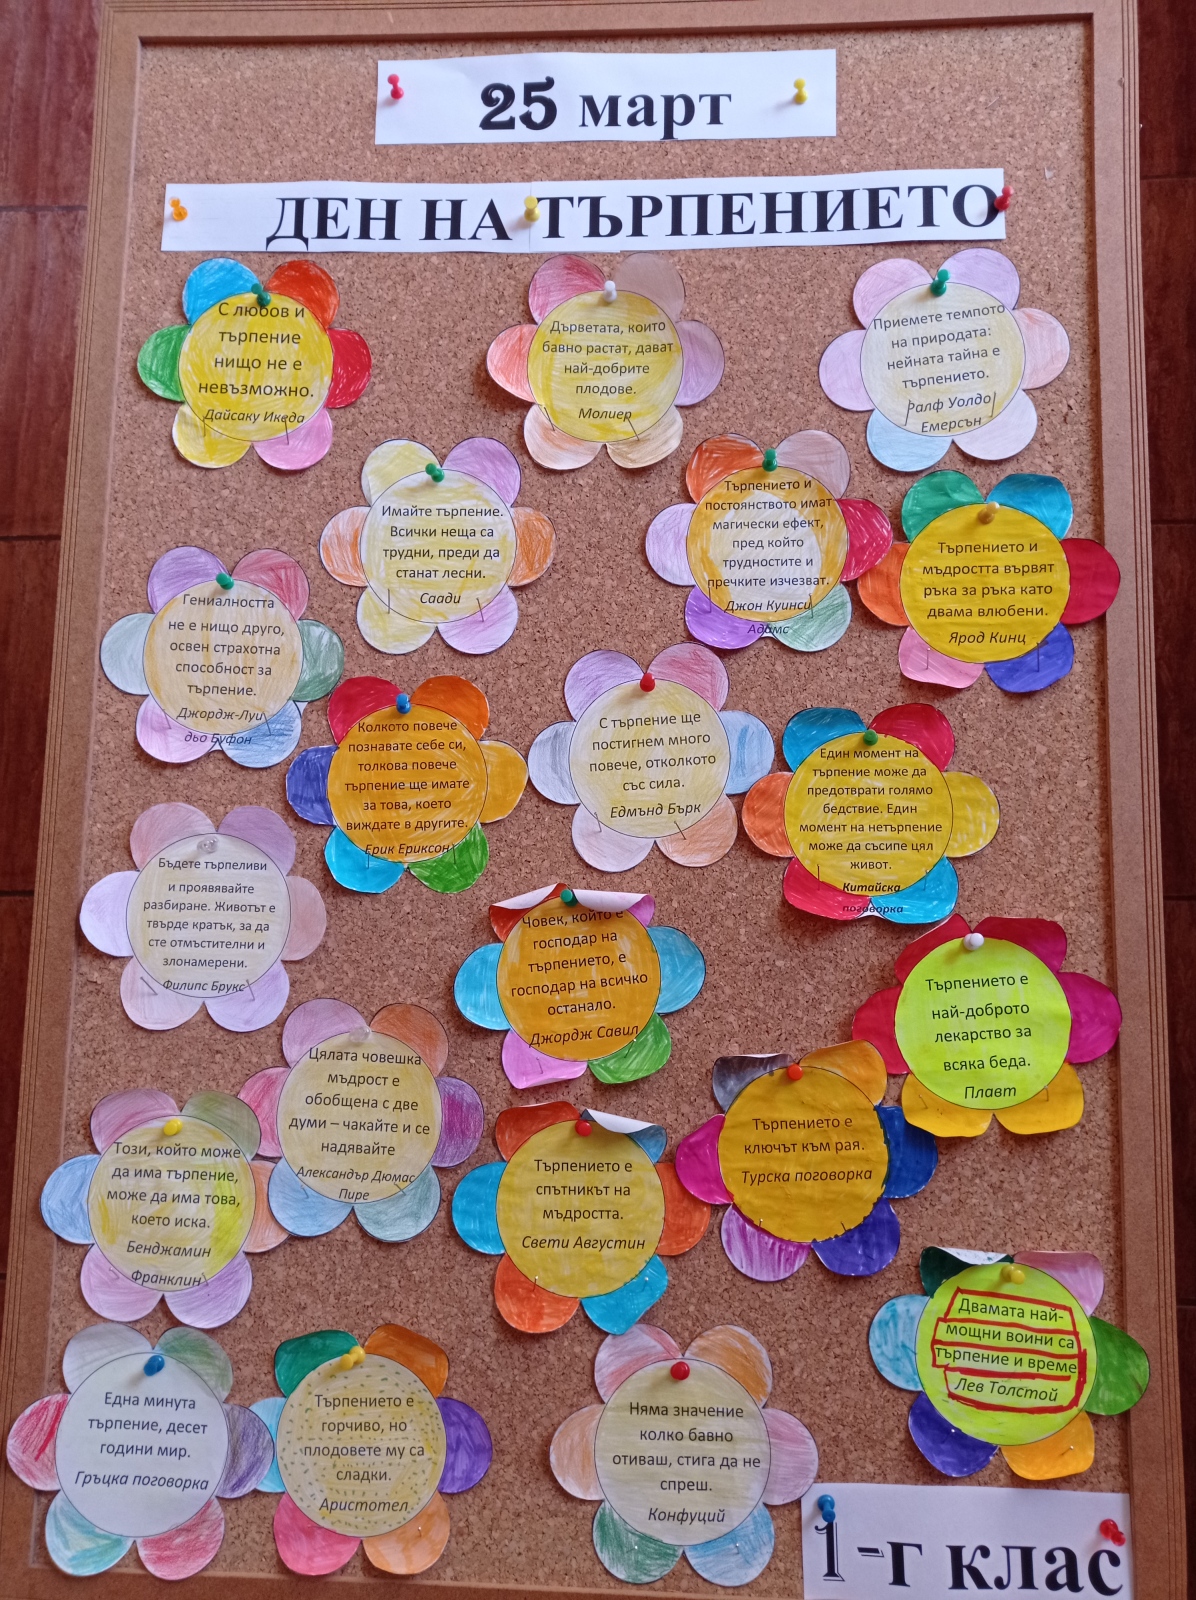 25 март
ДЕН НА ТЪРПЕНИЕТО
С любов и
търпение
нищо не е
невъзможно.
Дайсаку Икеда
Дърветата, които
бавно растат, дават
най-добрите
плодове.
Молиер
Приемете темпото
на природата:
нейната тайна е
търпението.
Ралф Уолдо
Емерсън
Имайте търпение.
Всички неща са
трудни, преди да
станат лесни.
Саади
Търпението и
постоянството имат
магически ефект,
пред който
трудностите и
пречките изчезват.
Джон Куинси
Адамс
Търпението и
мъдростта вървят
ръка за ръка като
двама влюбени.
Ярод Кинц
Гениалността
не е нищо друго,
освен страхотна
способност за
търпение.
Джордж-Луи
дьо Буфон
Колкото повече
познавате себе си,
толкова повече
търпение ще имате
за това, което
виждате в другите.
Ерик Ериксон
С търпение ще
постигнем много
повече, отколкото
със сила.
Едмънд Бърк
Един момент на
търпение може да
предотврати голямо
бедствие. Един
момент на нетърпение
може да съсипе цял
живот.
Китайска
поговорка
Бъдете търпеливи
и проявявайте
разбиране. Животът е
твърде кратък, за да
сте отмъстителни и
злонамерени.
Филипс Брукс
Човек, който е
господар на
търпението, е
господар на всичко
останало.
Джордж Савил
Търпението е
най-доброто
лекарство за
всяка беда.
Плавт
Цялата човешка
мъдрост е
обобщена с две
думи – чакайте и се
надявайте
Александър Дюмас
Пире
Търпението е
ключът към рая.
Турска поговорка
Този, който може
да има търпение,
може да има това,
което иска.
Бенджамин
Франклин
Търпението е
спътникът на
мъдростта.
Свети Августин
Двамата най-
мощни воини са
търпение и време
Лев Толстой
Една минута
търпение, десет
години мир.
Гръцка поговорка
Търпението е
горчиво, но
плодовете му са
сладки.
Аристотел
Няма значение
колко бавно
отиваш, стига да не
спреш.
Конфуций
1-г клас